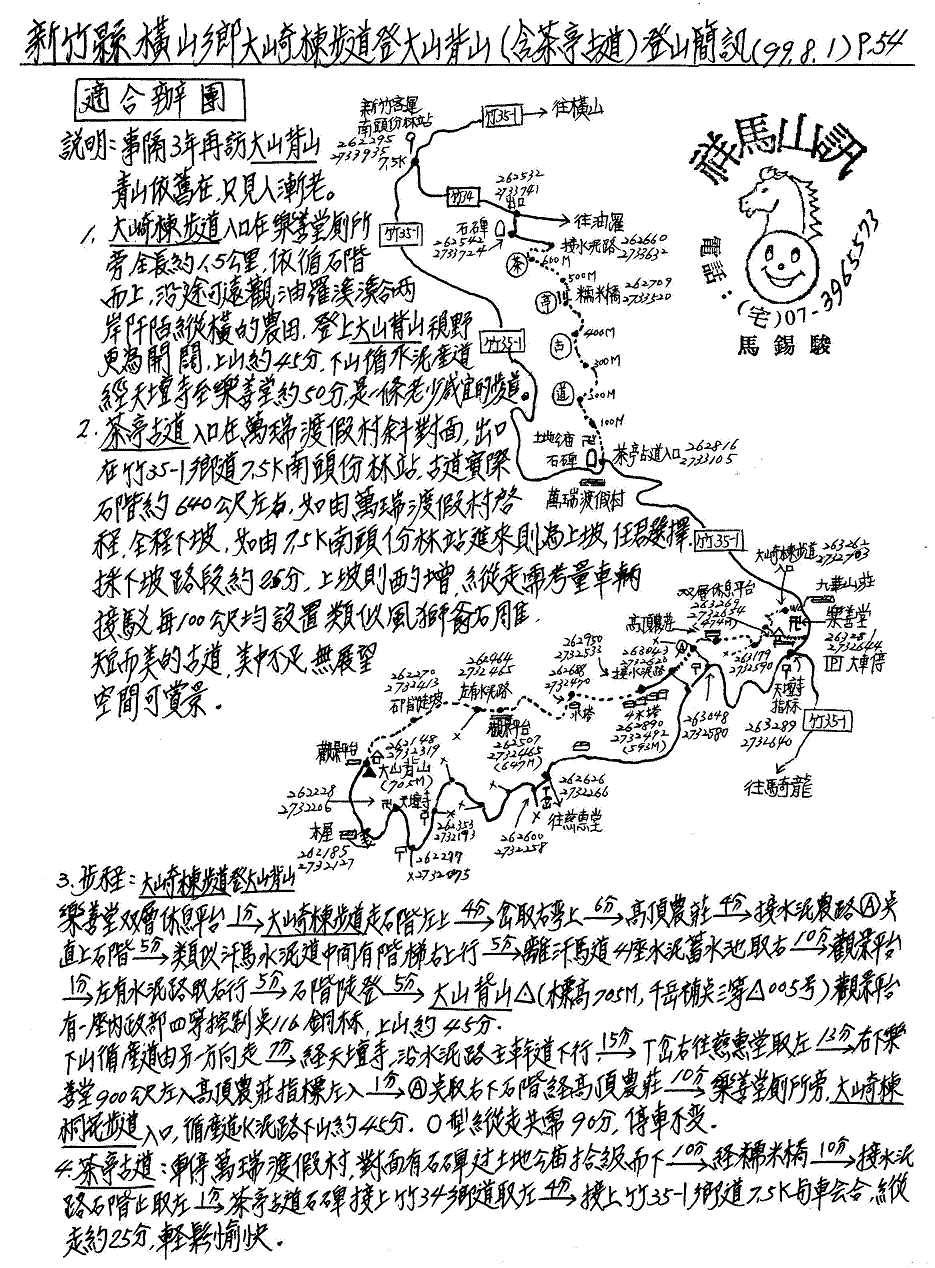 新竹縣橫山鄉大崎棟步道登大山背山(含茶亭古道)登山簡訊(99.8.1) P.54
適合辦團
說明:事隔3年再訪大山背山
青山依舊在,只見人漸老。
1. 大崎棟步道入口在樂善堂廁所
旁全長約1.5公里,依循石階
而上,沿途可遠觀油羅溪溪谷兩
岸阡陌縱橫的農田,登上大山背山視野
更為開闊,上山約45分,下山循水泥產道
經天壇寺至樂善堂約50分,是一條老少咸宜的步道。
2. 茶亭古道入口在萬瑞渡假村斜對面,出口
在竹35-1鄉道7.5K南頭份林站,古道實際
石階約640公尺左右,如由萬瑞渡假村啓
程,全程下坡,如由7.5K南頭份林站進來則為上坡,任君選擇.
採下坡路段約25分,上坡則酌增,縱走需考量車輛
接駁每100公尺均設置類似風獅爺石周隹,
短而美的古道,美中不足,無展望
空間可賞景。
祥馬山訊
電話:(宅)07-3965573
馬錫駿
新竹客運
南頭份林站
262295
2733935
7.5K
竹35-1
往橫山
竹34
262532
2733741
出口
往油羅
竹35-1
石碑
262542
2733724
接水泥路 262660
2733632
茶
600M
500M
亭
糯米橋 262709
2733520
400M
古
竹35-1
300M
道
100M
石碑
茶亭古道入口 262816
2733105
萬瑞渡假村
竹35-1
大崎棟步道
入口
263262
九華山莊
樂善堂
2732644
P 大車停
双層休息平台
263269
2732654
(474M)
高頂農莊
263043
2732622
A
263179
2732590
天壇寺
指標
263289
2732640
竹35-1
往馬騎龍
263048
2732580
262950
2732533
接水泥路
262688
2732470
水塔
4水塔
262890
2732492
(593M)
262464
2732465
左有水泥路
262270
2732413
觀景平台
262507
2732465
(647M)
觀景平台
262148
2732319
大山背山
(705M)
262228
2732206
天壇寺
木屋
262185
2732127
262353
2732193
262277
262600
2732258
262626
2732266
往慈惠堂
3. 步程:大崎棟步道登大山背山
樂善堂双層休息平台 1分→ 大崎棟步道走石階左上 4分→ 岔取右彎上 6分→ 高頂農莊 4分→ 接水泥農路Ⓐ點
直上石階 5分→ 類似汗馬水泥道中間有階梯右上行 5分→ 離汗馬道4座水泥蓄水池取右 10分→ 觀景平台
1分→ 左有水泥路取右行 5分→ 石階陡登 5分→ 大山背山△(標高705M,千岳補點三等△005号)觀景平台
有一座內政部四等控制點116銅标,上山約45分.
下山循產道由另一方向走 7分→ 經天壇寺,沿水泥路主幹道下行 15分→ 丅岔右往慈惠堂取左 13分→ 右下樂
善堂900公尺左入高頂農莊指標左入 1分→ Ⓐ點取右下石階經高頂農莊 10分→ 樂善堂廁所旁,大崎棟
桐花步道入口,循產道水泥路下山約45分. O型縱走共需90分,停車不变。
4. 茶亭古道:車停萬瑞渡假村,對面有石碑过土地公廟拾級而下 10分→ 經糯米橋 10分→ 接水泥
路石階止取左 1分→ 茶亭古道石碑接上竹34鄉道取左 4分→ 接上竹35-1鄉道7.5K与車会合,縱
走約25分,輕鬆愉快。